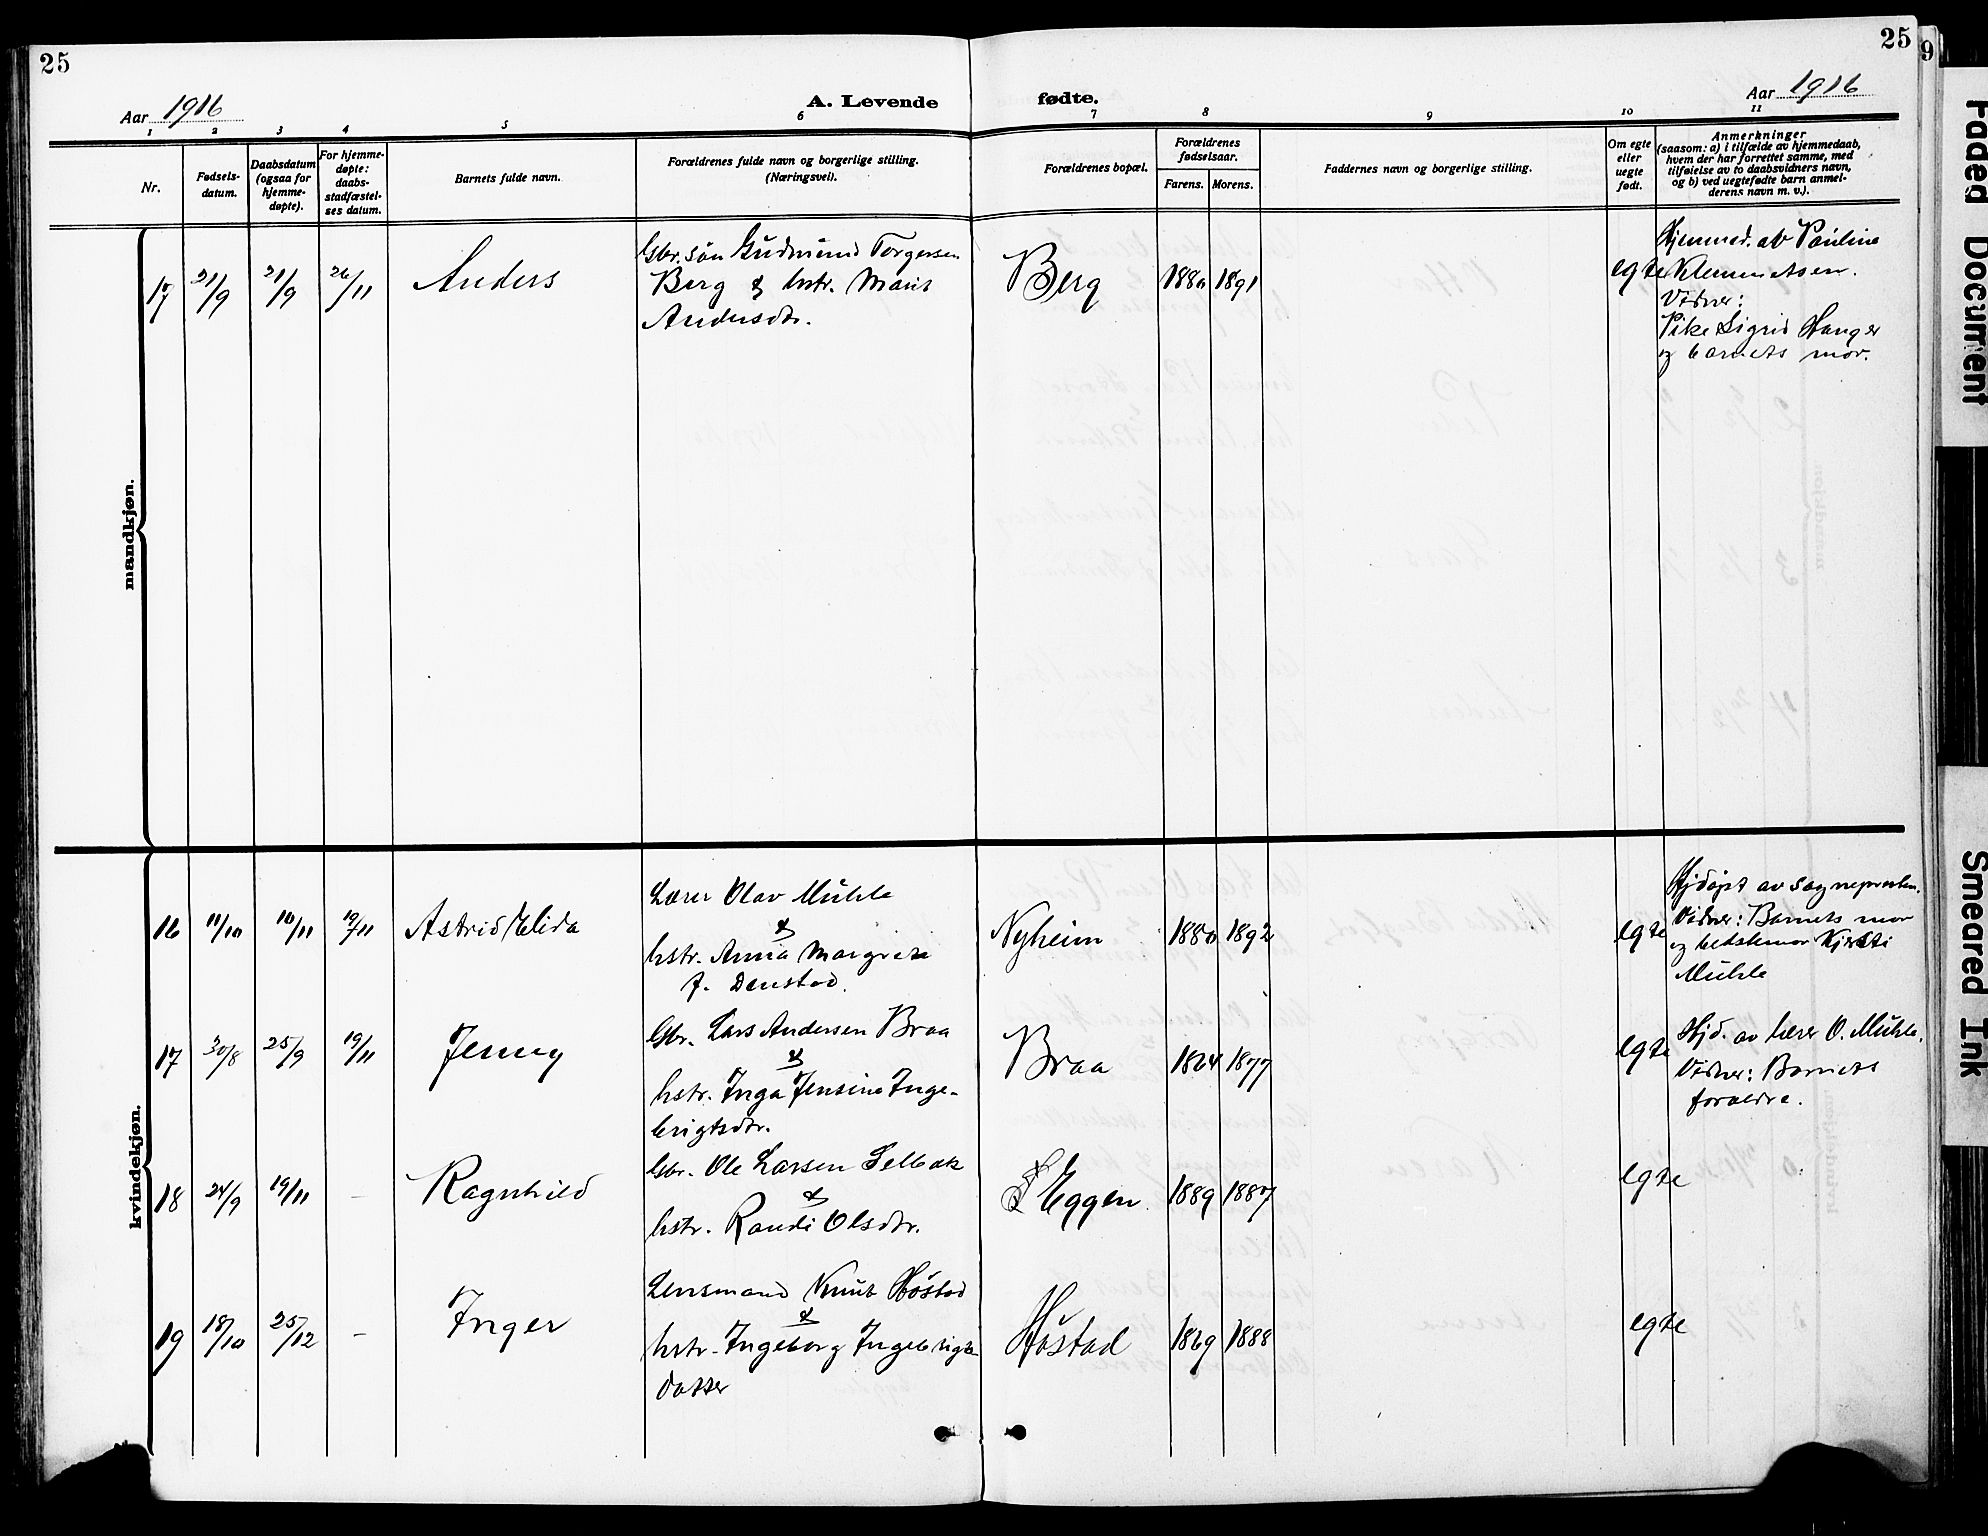 25
25
9
Aar 1916
A. Levende
fødte.
Aar 1916
1 2 3 4 5 6 7 8 9 10 11
Nr.
Fødsels-
datum.
Daabsdatum
(ogsaa for
hjemme-
døpte).
For hjemme-
døpte:
daabs-
stadfæstel-
ses datum.
Barnets fulde navn.
Forældrenes fulde navn og borgerlige stilling.
(Næringsvei).
Forældrenes bopæl.
Forældrenes
fødselsaar.
Farens. Morens.
Faddernes navn og borgerlige stilling.
Om egte
eller
uegte
født.
Anmerkninger
(saasom: a) i tilfælde av hjemmedaab,
hvem der har forrettet samme, med
tilføielse av to daabsvidners navn,
og b) ved uegtefødte barn anmel-
derens navn m. v.).
mandkjøn.
17 21/9 21/9 26/11 Anders
Gbr. søn Gudmund Torgersen
Berg & hstr. Marit
Andersdtr.
Berg 1880 1891
egte
Hjemmed. av Pauline
Klemmetsen.
Vidner:
Pike Sigrid Hanger
og barnets mor.
kvindekjøn.
16 11/10 10/11 19/11 Astrid Elida
Lærer Olav Mühle
&
hstr. Anna Margrete
f. Denstad.
Nyheim 1880 1892
egte
Hjdøpt av sognepresten.
Vidner: Barnets mor
og bedstemor Kjersti
Mühle
17 30/8 25/9 19/11 Jenny
Gbr. Lars Andersen Braa
&
hstr. Inga Jensine Inge-
brigtsdtr.
Braa 1864 1877
egte
Hjd. av lærer O. Mühle.
Vidner: Barnets
forældre.
18 24/9 19/11 – Ragnhild
Gbr. Ole Larsen Selbæk
&
hstr. Randi Olsdtr.
Eggen 1889 1887
egte
19 18/10 25/12 – Inger
Lensmand Knut Høstad
&
hstr. Ingeborg Ingebrigts-
datter
Høstad 1869 1888
egte
Faded Document
Smeared Ink